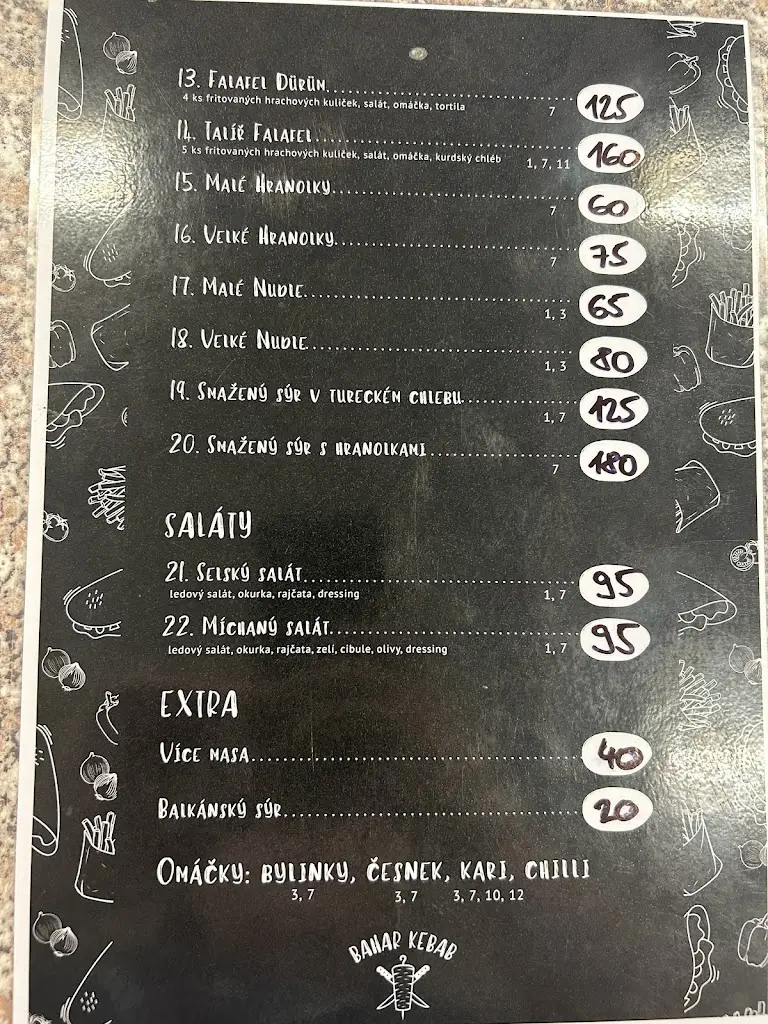 13. Falafel Dürün 125
4 ks fritovaných hrachových kuliček, salát, omáčka, tortila 7
14. Talíř Falafel 160
5 ks fritovaných hrachových kuliček, salát, omáčka, kurdský chléb 1, 7, 11
15. Malé Hranolky 60
7
16. Velké Hranolky 75
7
17. Malé Nudle 65
1, 3
18. Velké Nudle 80
1, 3
19. Smažený sýr v tureckém chlebu 125
1, 7
20. Smažený sýr s hranolkami 180
7
SALÁTY
21. Selský salát 95
ledový salát, okurka, rajčata, dressing 1, 7
22. Míchaný salát 95
ledový salát, okurka, rajčata, zelí, cibule, olivy, dressing 1, 7
EXTRA
Více masa 40
Balkánský sýr 20
Omáčky: bylinky, česnek, kari, chilli
3, 7 3, 7 3, 7, 10, 12
BAHAR KEBAB